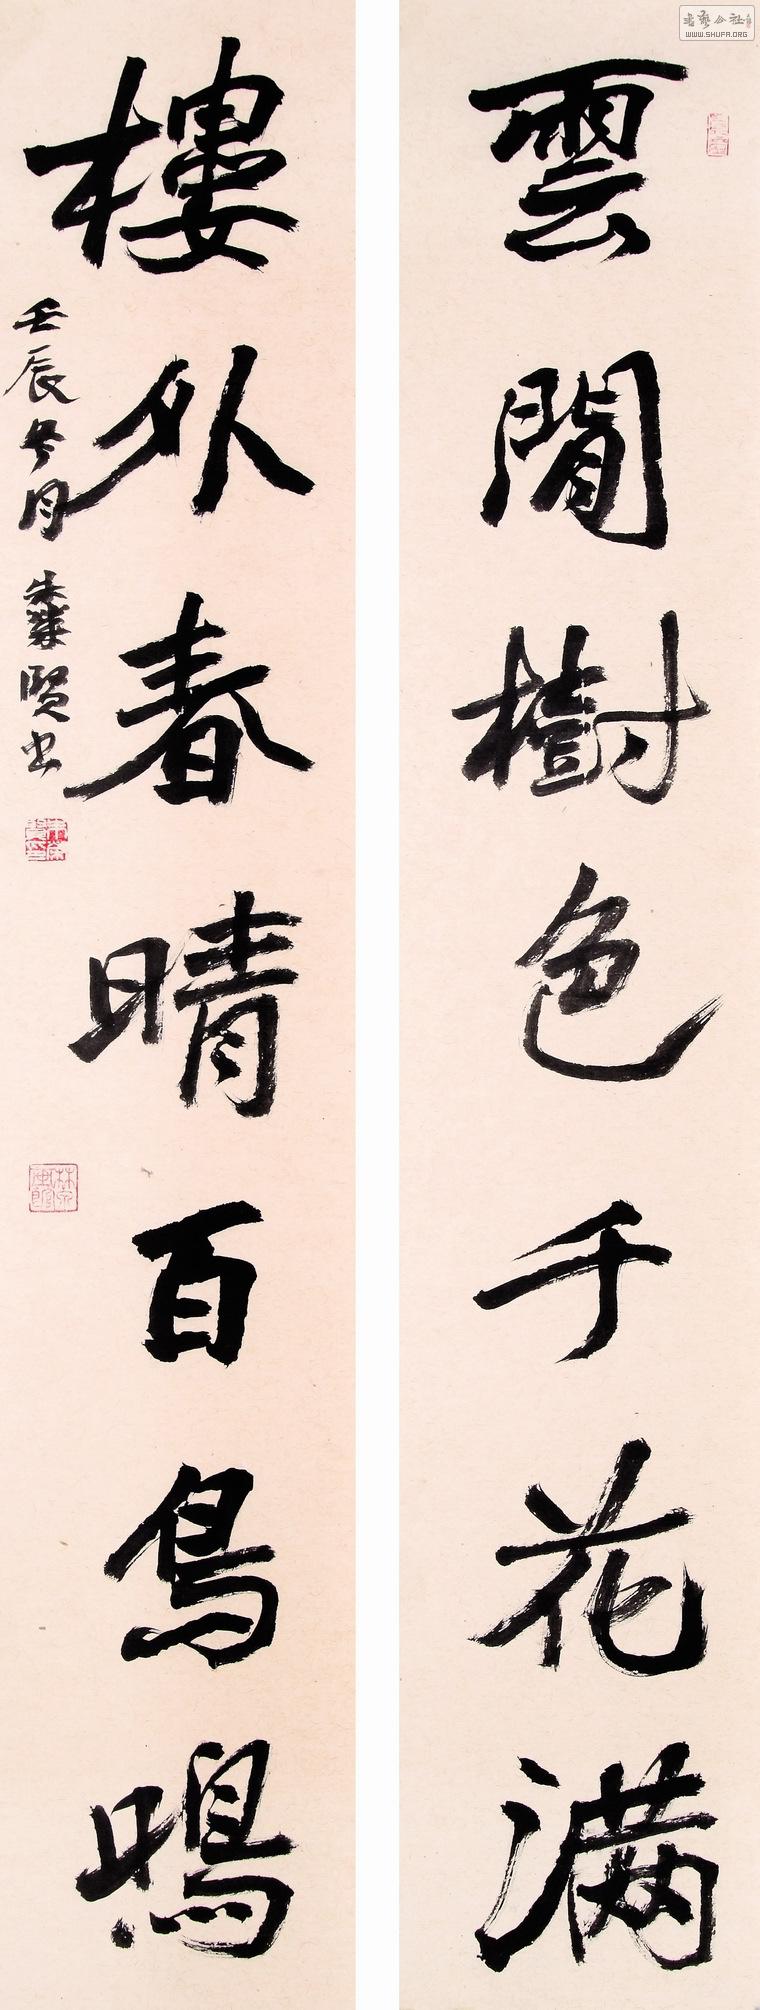 雲閒樹色千花滿
樓外春晴百鳥鳴
壬辰冬月 朱 賢书
書艺公社
WWW.SHUFA.ORG